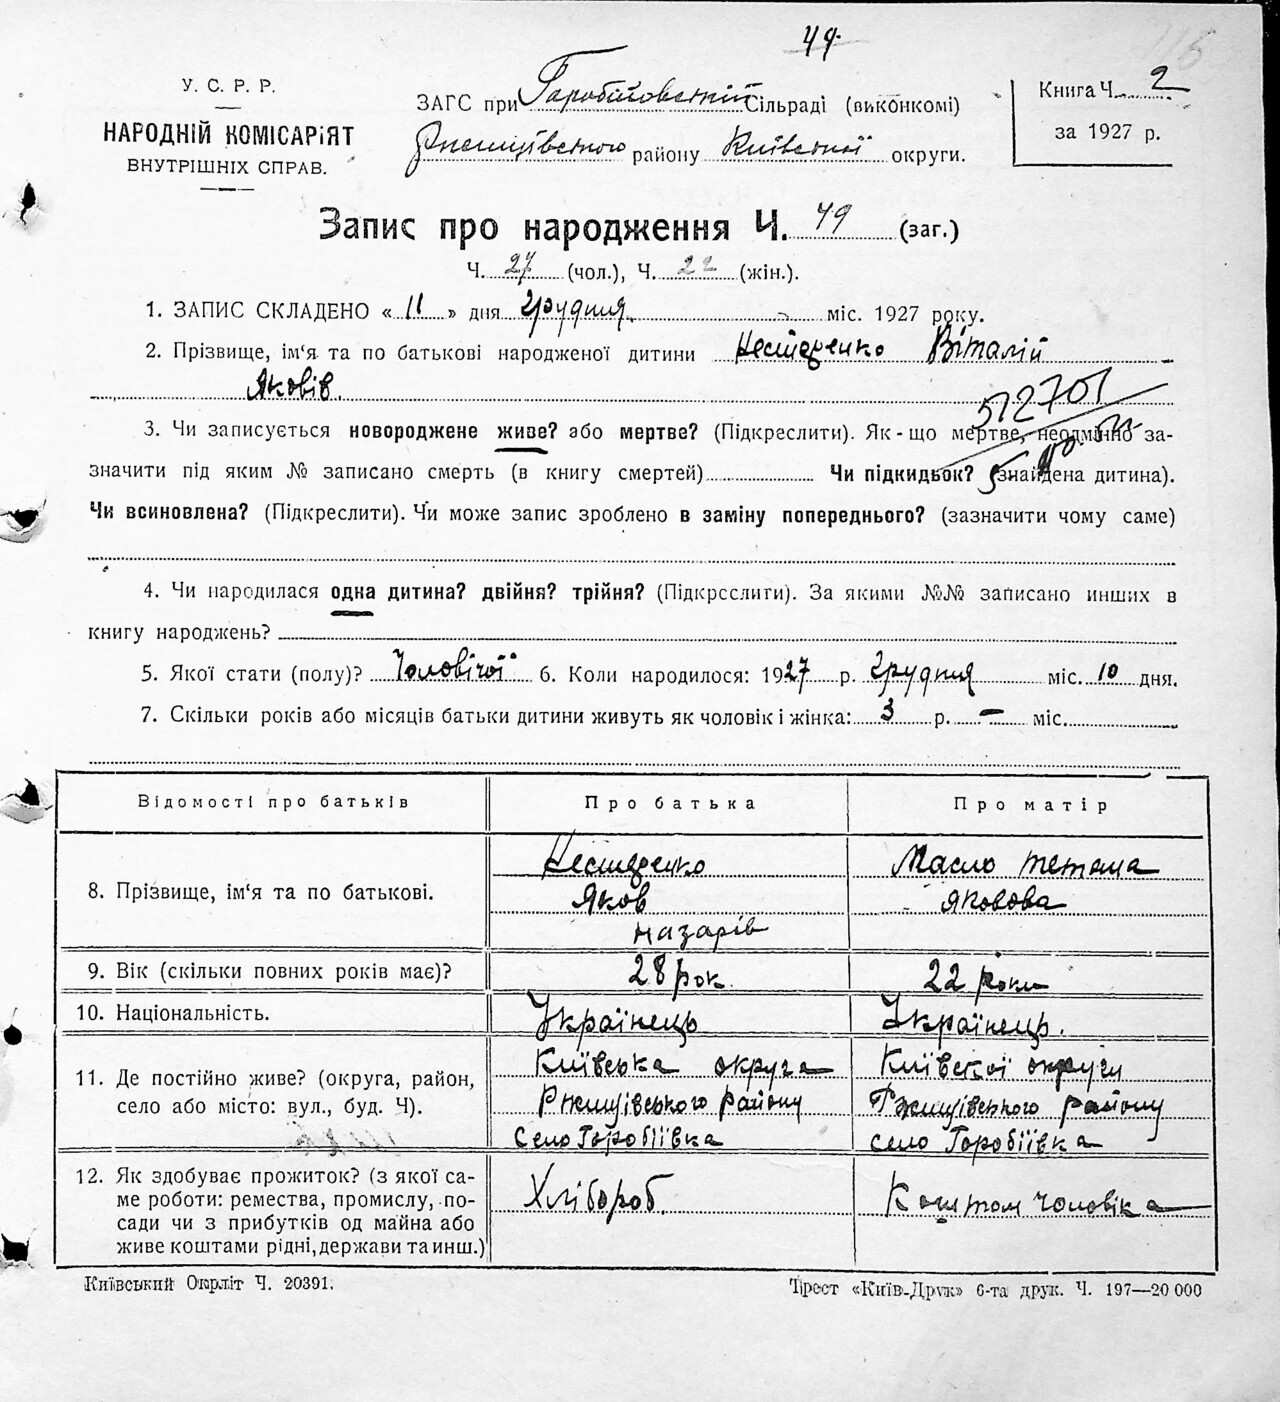 49
У. С. Р. Р.
НАРОДНІЙ КОМІСАРІЯТ
ВНУТРІШНІХ СПРАВ.
ЗАГС при Горобіївський Сільраді (виконкомі)
Ржищівського району Київської округи.
Книга Ч. 2
за 1927 р.
Запис про народження Ч. 49 (заг.)
Ч. 27 (чол.), Ч. 22 (жін.).
1. ЗАПИС СКЛАДЕНО « 11 » дня грудня міс. 1927 року.
2. Прізвище, ім'я та по батькові народженої дитини Нестеренко Віталій
Яковів.
512701
3. Чи записується новороджене живе? або мертве? (Підкреслити). Як-що мертве, неодмінно за-
значити під яким № записано смерть (в книгу смертей) Чи підкидьок? (знайдена дитина).
Чи всиновлена? (Підкреслити). Чи може запис зроблено в заміну попереднього? (зазначити чому саме)
4. Чи народилася одна дитина? двійня? трійня? (Підкреслити). За якими №№ записано инших в
книгу народжень?
5. Якої стати (полу)? Чоловічої 6. Коли народилося: 1927 р. грудня міс. 10 дня.
7. Скільки років або місяців батьки дитини живуть як чоловік і жінка: 3 р. — міс.
Відомості про батьків Про батька Про матір
8. Прізвище, ім'я та по батькові.
Нестеренко
Яков
Назарів
Масло Тетяна
Яковова
9. Вік (скільки повних років має)? 28 рок. 22 роки
10. Національність. Українець Українець.
11. Де постійно живе? (округа, район,
село або місто: вул., буд. Ч).
Київська округа
Ржищівського району
село Горобіївка
Київської округи
Ржищівського району
село Горобіївка
12. Як здобуває прожиток? (з якої са-
ме роботи: ремества, промислу, по-
сади чи з прибутків од майна або
живе коштами рідні, держави та инш.)
Хлібороб.
Коштом чоловіка
Київський Окрліт Ч. 20391.
Трест «Київ-Друк» 6-та друк. Ч. 197—20 000